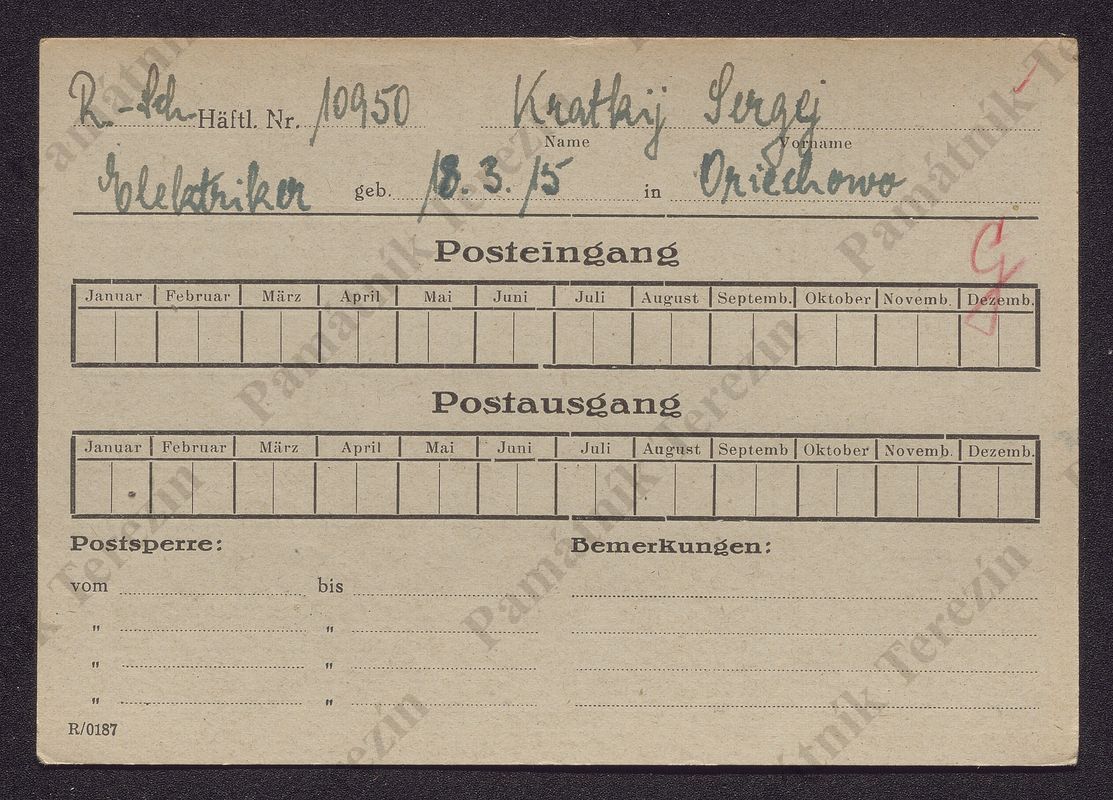 R.-Sch. Häftl. Nr. 10950 Kratkij Sergej
Name Vorname
Elektriker geb. 18. 3. 15 in Oriechowo
Posteingang
Januar Februar März April Mai Juni Juli August Septemb. Oktober Novemb. Dezemb.
Postausgang
Januar Februar März April Mai Juni Juli August Septemb Oktober Novemb. Dezemb.
Postsperre: Bemerkungen:
vom bis
" "
" "
" "
R/0187
Památník Terezín